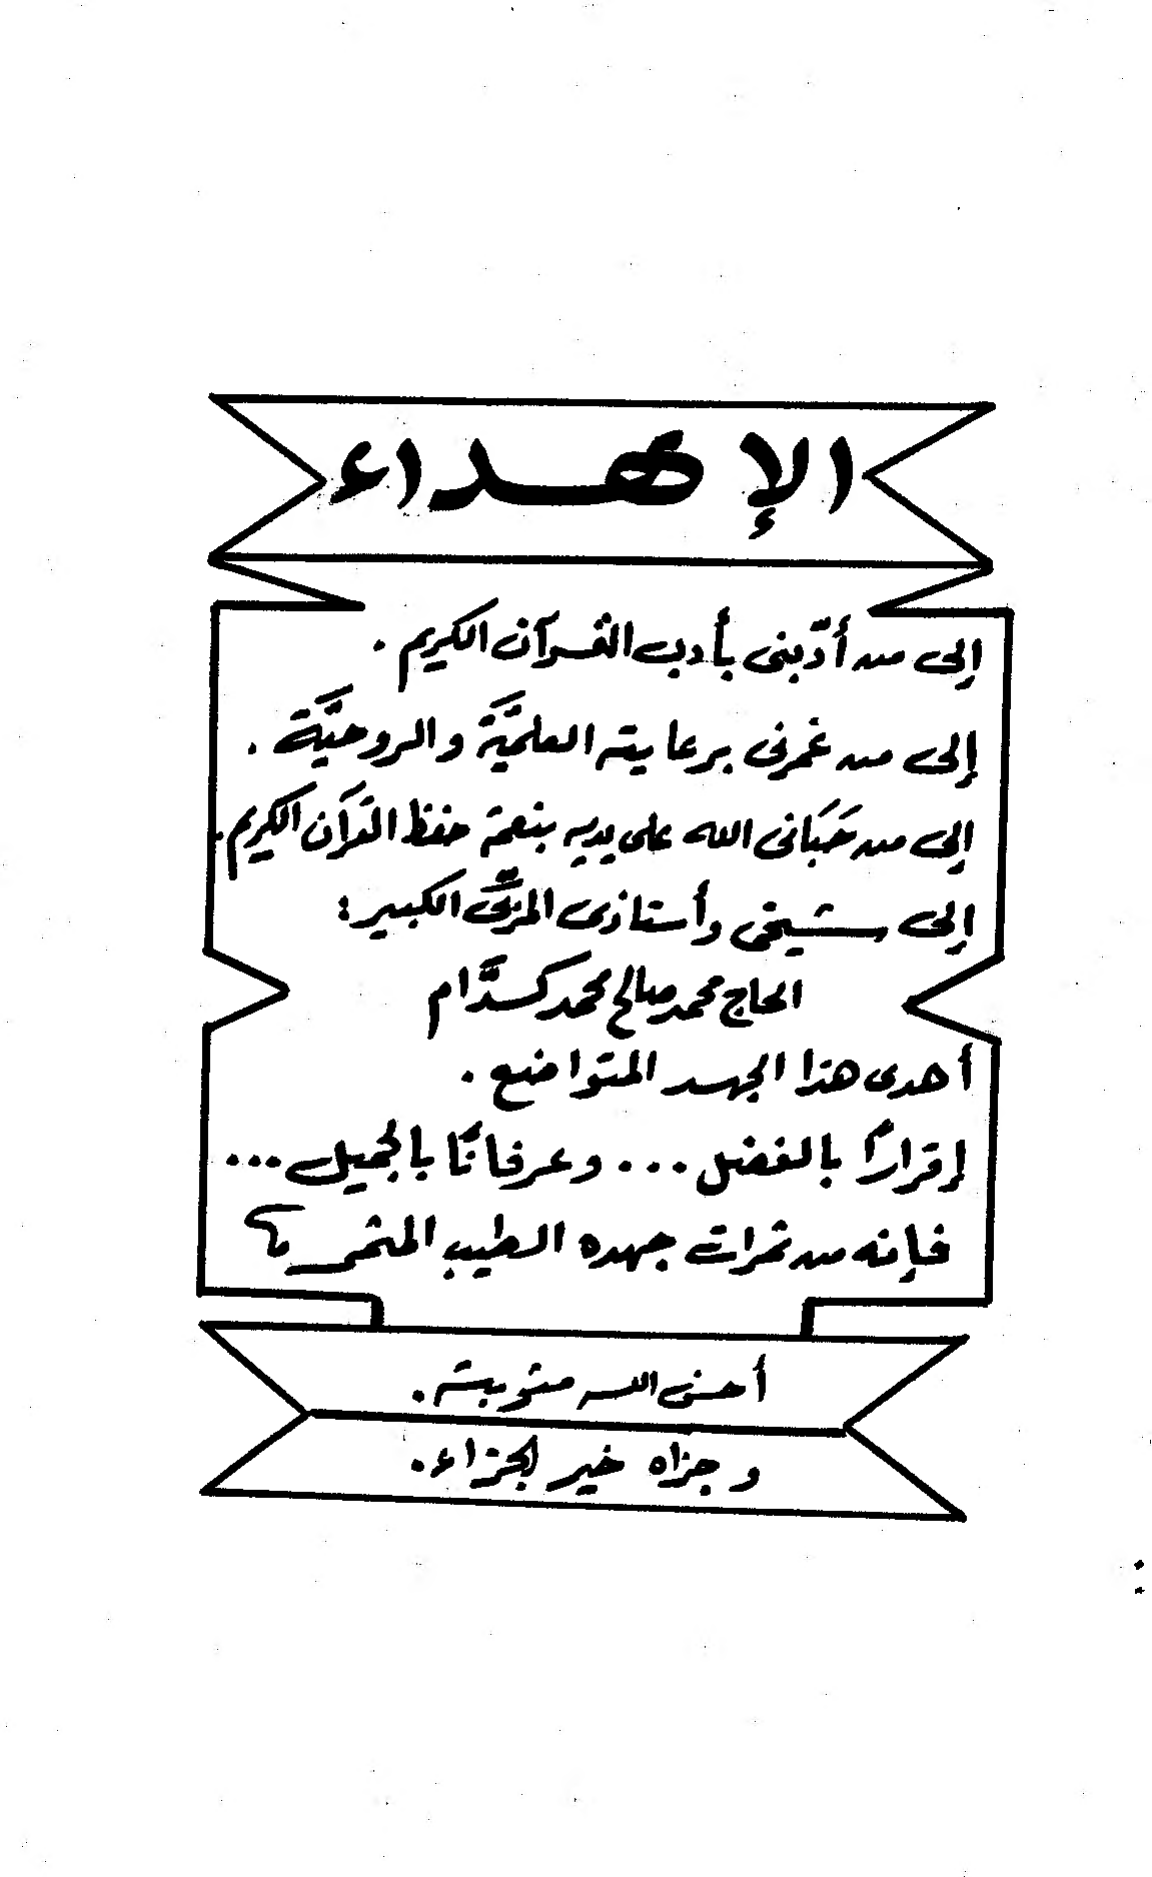 الإهداء
إلى من أدّبنى بأدب القرآن الكريم .
إلى من غمرنى برعايته العلميَّة والروحيَّة .
إلى من حَبَانى الله على يديه بنعمة حفظ القرآن الكريم .
إلى شيخى وأستاذى المربِّى الكبير :
الحاج محمد صالح محمد كسدَّام
أهدى هذا الجهد المتواضع .
إقرارًا بالفضل ... وعرفانًا بالجميل ...
فإنه من ثمرات جهده الطيب المثمر
أحسن الله مثوبته .
وجزاه خير الجزاء .